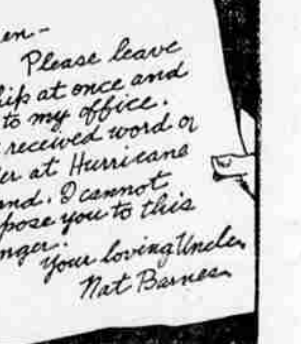 en-
Please leave
ship at once and
to my office.
received word of
er at Hurricane
and. I cannot
pose you to this
nger.
Your loving Uncle,
Nat Barnes